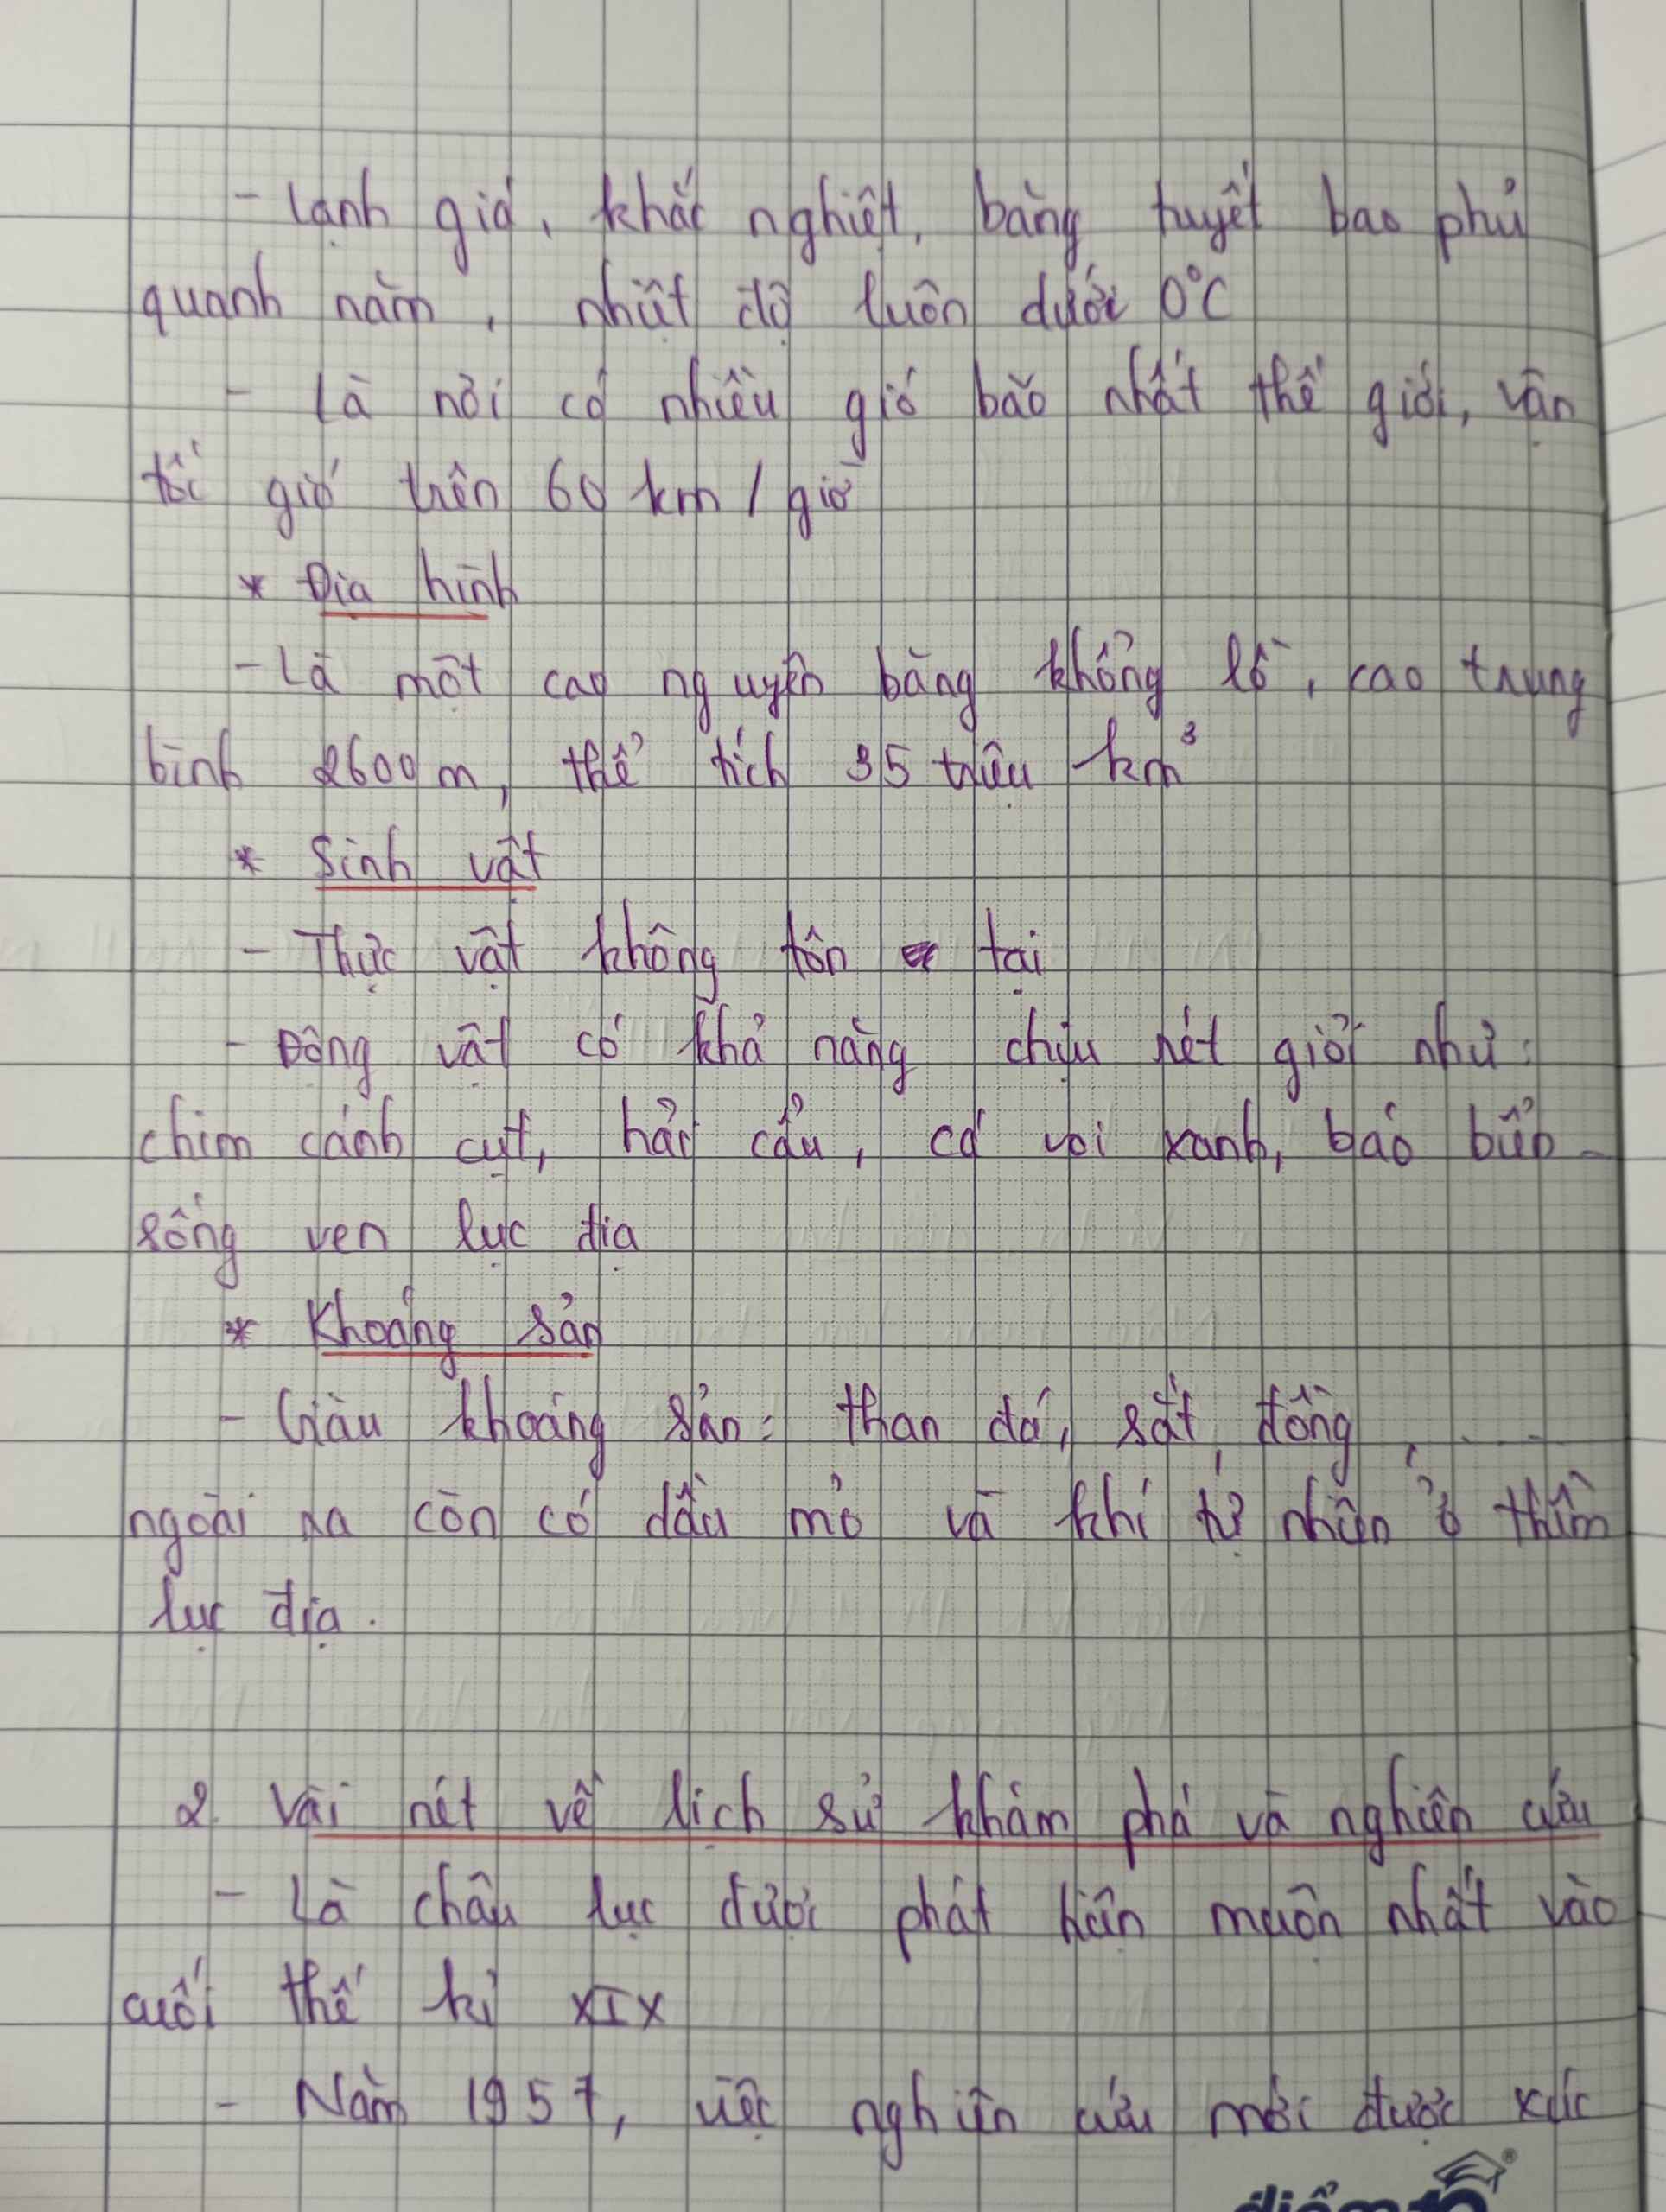 - Lạnh giá, khắc nghiệt, băng tuyết bao phủ
quanh năm, nhiệt độ luôn dưới 0°C
- Là nơi có nhiều gió bão nhất thế giới, vận
tốc gió trên 60 km / giờ
* Địa hình
- Là một cao nguyên băng khổng lồ, cao trung
bình 2600 m, thể tích 35 triệu km³
* Sinh vật
- Thực vật không tồn tại
- Động vật có khả năng chịu rét giỏi như:
chim cánh cụt, hải cẩu, cá voi xanh, báo biển
sống ven lục địa
* Khoáng sản
- Giàu khoáng sản: than đá, sắt, đồng, ...
ngoài ra còn có dầu mỏ và khí tự nhiên ở thềm
lục địa.
2. Vài nét về lịch sử khám phá và nghiên cứu
- Là châu lục được phát hiện muộn nhất vào
cuối thế kỉ XIX
- Năm 1957, việc nghiên cứu mới được xúc
điểm 10